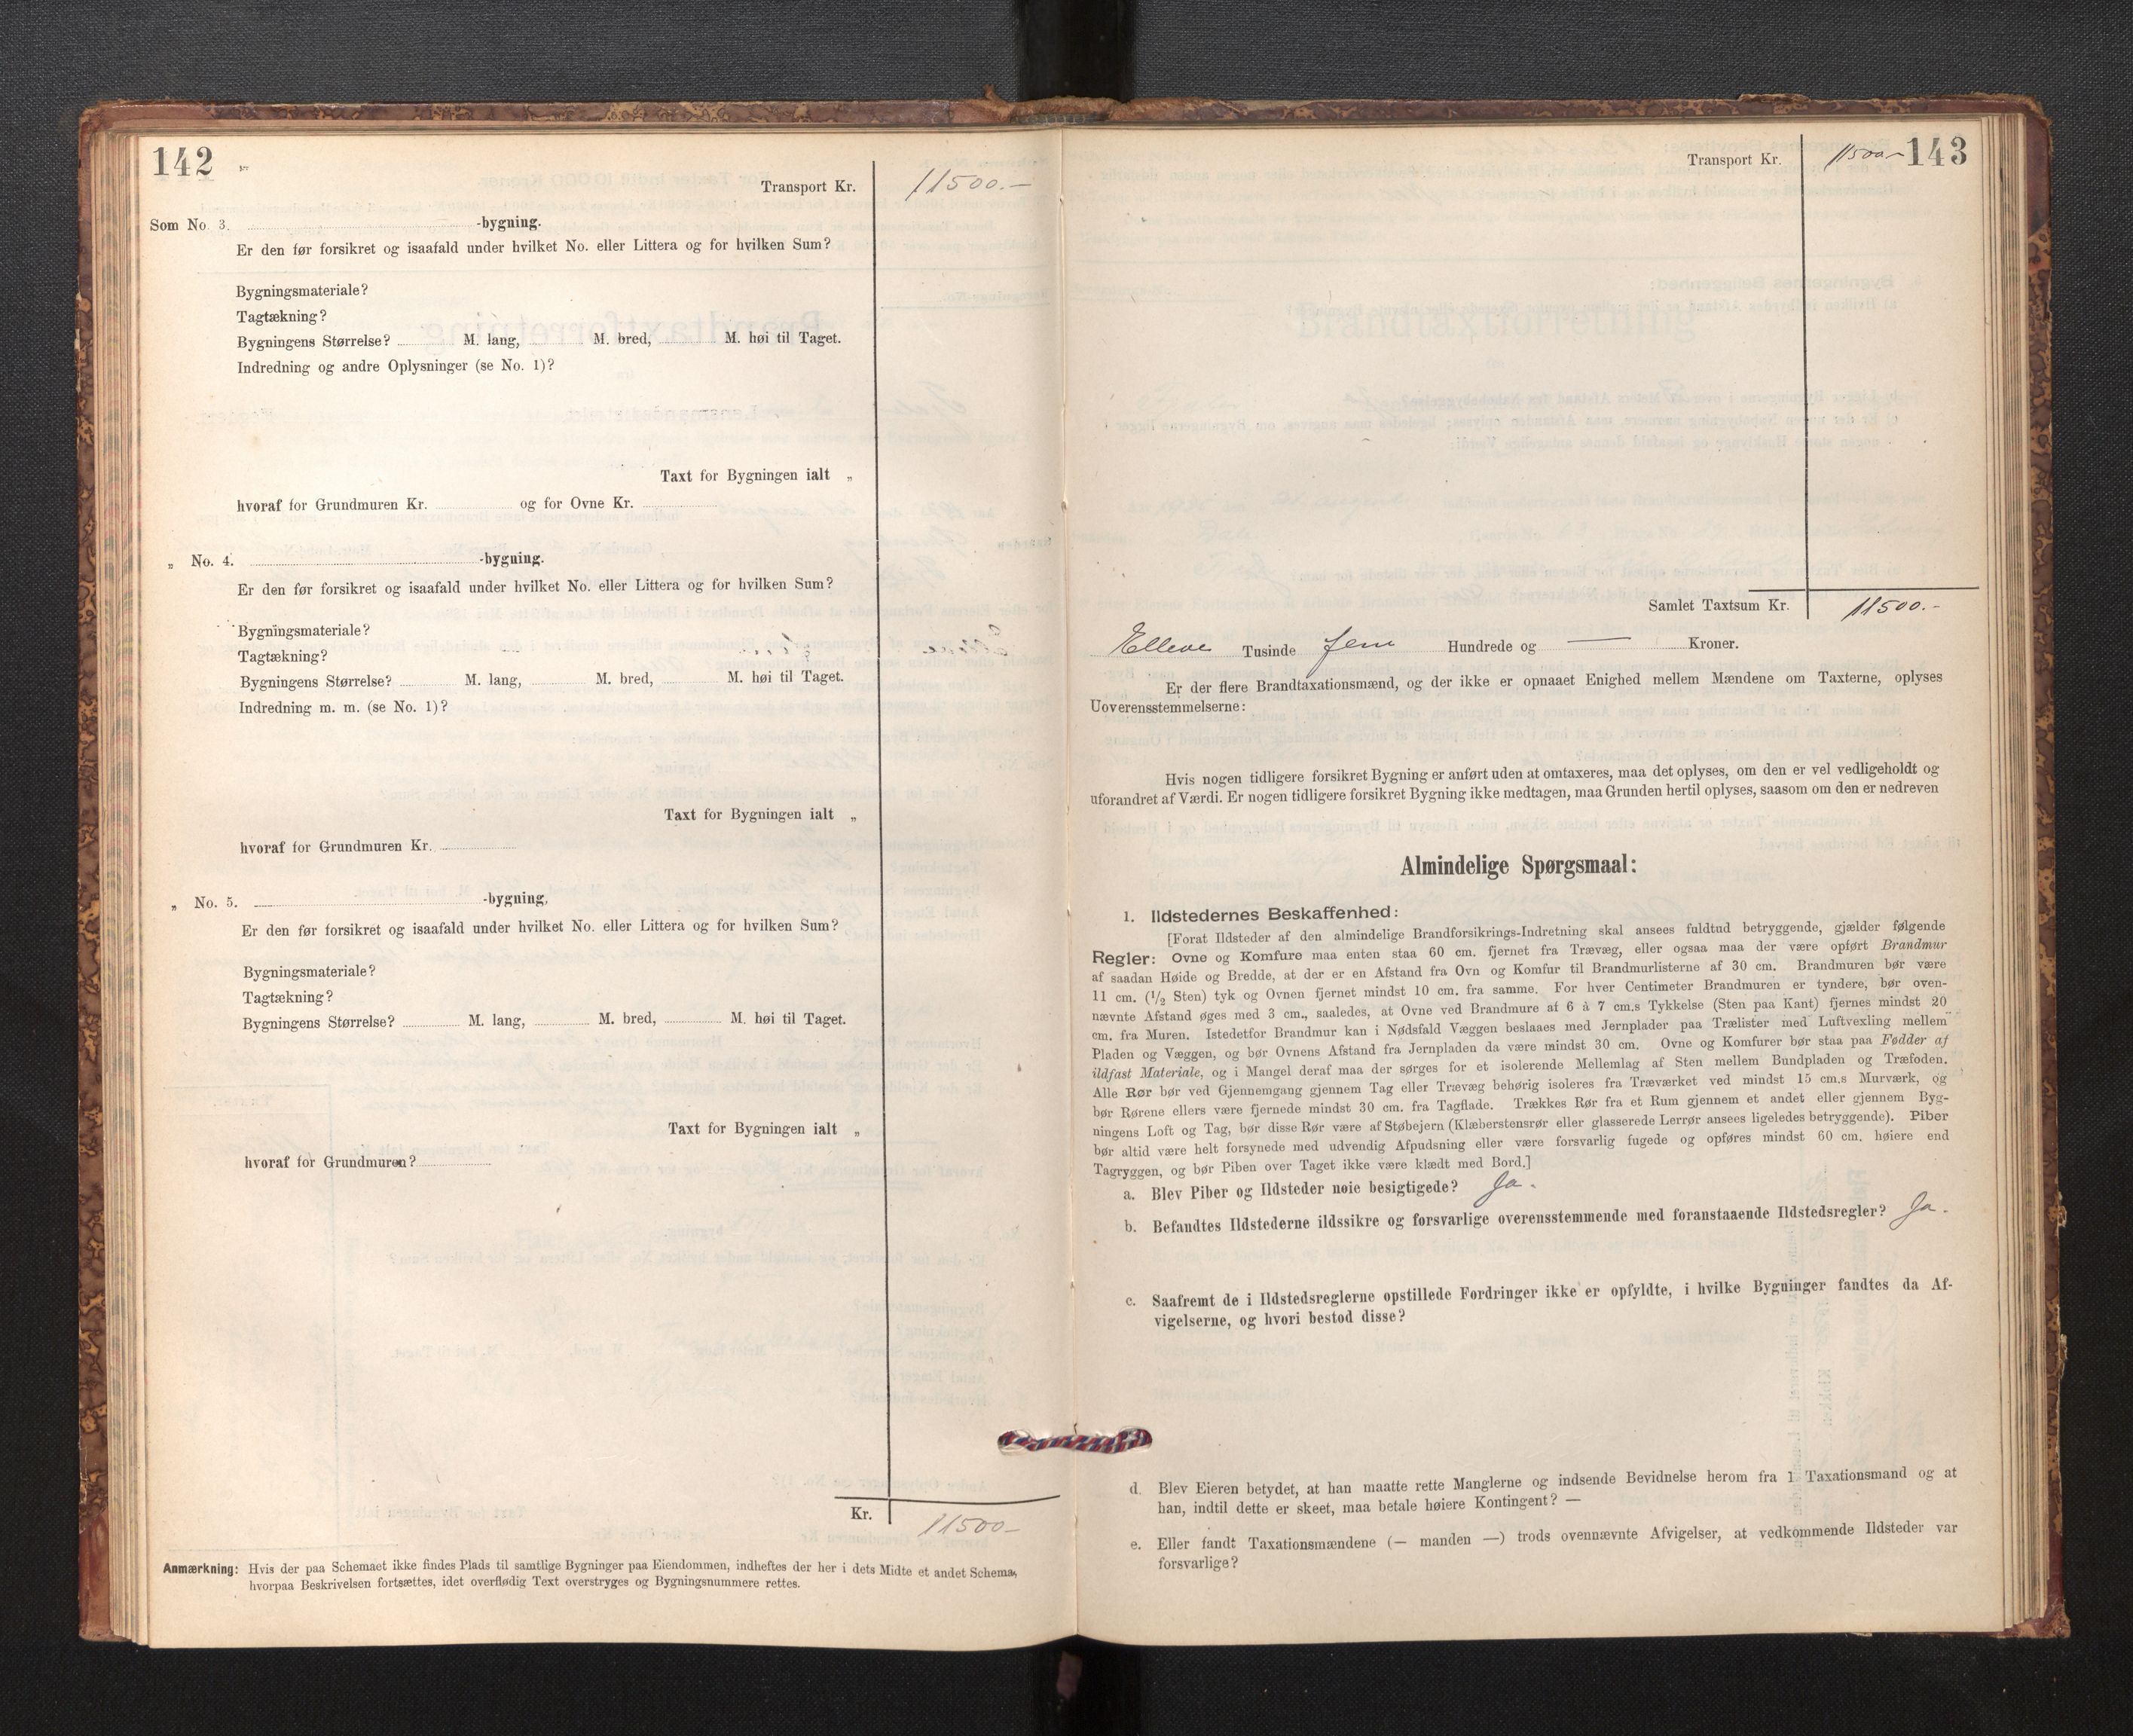 142
Transport Kr. 11500.—
Som No. 3. -bygning.
Er den før forsikret og isaafald under hvilket No. eller Littera og for hvilken Sum?
Bygningsmateriale?
Tagtækning?
Bygningens Størrelse? M. lang, M. bred, M. høi til Taget.
Indredning og andre Oplysninger (se No. 1)?
Taxt for Bygningen ialt „
hvoraf for Grundmuren Kr. og for Ovne Kr.
„ No. 4. -bygning.
Er den før forsikret og isaafald under hvilket No. eller Littera og for hvilken Sum?
Bygningsmateriale?
Tagtækning?
Bygningens Størrelse? M. lang, M. bred, M. høi til Taget.
Indredning m. m. (se No. 1)?
Taxt for Bygningen ialt „
hvoraf for Grundmuren Kr.
„ No. 5. -bygning,
Er den før forsikret og isaafald under hvilket No. eller Littera og for hvilken Sum?
Bygningsmateriale?
Tagtækning?
Bygningens Størrelse? M. lang, M. bred, M. høi til Taget.
Taxt for Bygningen ialt „
hvoraf for Grundmuren?
Kr. 11500—
Anmærkning: Hvis der paa Schemaet ikke findes Plads til samtlige Bygninger paa Eiendommen, indheftes der her i dets Midte et andet Schema,
hvorpaa Beskrivelsen fortsættes, idet overflødig Text overstryges og Bygningsnummere rettes.
Transport Kr. 11500— 143
Samlet Taxtsum Kr. 11500.-
Elleve Tusinde fem Hundrede og — Kroner.
Er der flere Brandtaxationsmænd, og der ikke er opnaaet Enighed mellem Mændene om Taxterne, oplyses
Uoverensstemmelserne:
Hvis nogen tidligere forsikret Bygning er anført uden at omtaxeres, maa det oplyses, om den er vel vedligeholdt og
uforandret af Værdi. Er nogen tidligere forsikret Bygning ikke medtagen, maa Grunden hertil oplyses, saasom om den er nedreven
Almindelige Spørgsmaal:
1. Ildstedernes Beskaffenhed:
[Forat Ildsteder af den almindelige Brandforsikrings-Indretning skal ansees fuldtud betryggende, gjælder følgende
Regler: Ovne og Komfure maa enten staa 60 cm. fjernet fra Trævæg, eller ogsaa maa der være opført Brandmur
af saadan Høide og Bredde, at der er en Afstand fra Ovn og Komfur til Brandmurlisterne af 30 cm. Brandmuren bør være
11 cm. (1/2 Sten) tyk og Ovnen fjernet mindst 10 cm. fra samme. For hver Centimeter Brandmuren er tyndere, bør oven-
nævnte Afstand øges med 3 cm., saaledes, at Ovne ved Brandmure af 6 à 7 cm.s Tykkelse (Sten paa Kant) fjernes mindst 20
cm. fra Muren. Istedetfor Brandmur kan i Nødsfald Væggen beslaaes med Jernplader paa Trælister med Luftvexling mellem
Pladen og Væggen, og bør Ovnens Afstand fra Jernpladen da være mindst 30 cm. Ovne og Komfurer bør staa paa Fødder af
ildfast Materiale, og i Mangel deraf maa der sørges for et isolerende Mellemlag af Sten mellem Bundpladen og Træfoden.
Alle Rør bør ved Gjennemgang gjennem Tag eller Trævæg behørig isoleres fra Træværket ved mindst 15 cm.s Murværk, og
bør Rørene ellers være fjernede mindst 30 cm. fra Tagflade. Trækkes Rør fra et Rum gjennem et andet eller gjennem Byg-
ningens Loft og Tag, bør disse Rør være af Støbejern (Klæberstensrør eller glasserede Lerrør ansees ligeledes betryggende). Piber
bør altid være helt forsynede med udvendig Afpudsning eller være forsvarlig fugede og opføres mindst 60 cm. høiere end
Tagryggen, og bør Piben over Taget ikke være klædt med Bord.]
a. Blev Piber og Ildsteder nøie besigtigede? Ja.
b. Befandtes Ildstederne ildssikre og forsvarlige overensstemmende med foranstaaende Ildstedsregler? Ja.
c. Saafremt de i Ildstedsreglerne opstillede Fordringer ikke er opfyldte, i hvilke Bygninger fandtes da Af-
vigelserne, og hvori bestod disse?
d. Blev Eieren betydet, at han maatte rette Manglerne og indsende Bevidnelse herom fra 1 Taxationsmand og at
han, indtil dette er skeet, maa betale høiere Kontingent? —
e. Eller fandt Taxationsmændene (— manden —) trods ovennævnte Afvigelser, at vedkommende Ildsteder var
forsvarlige?